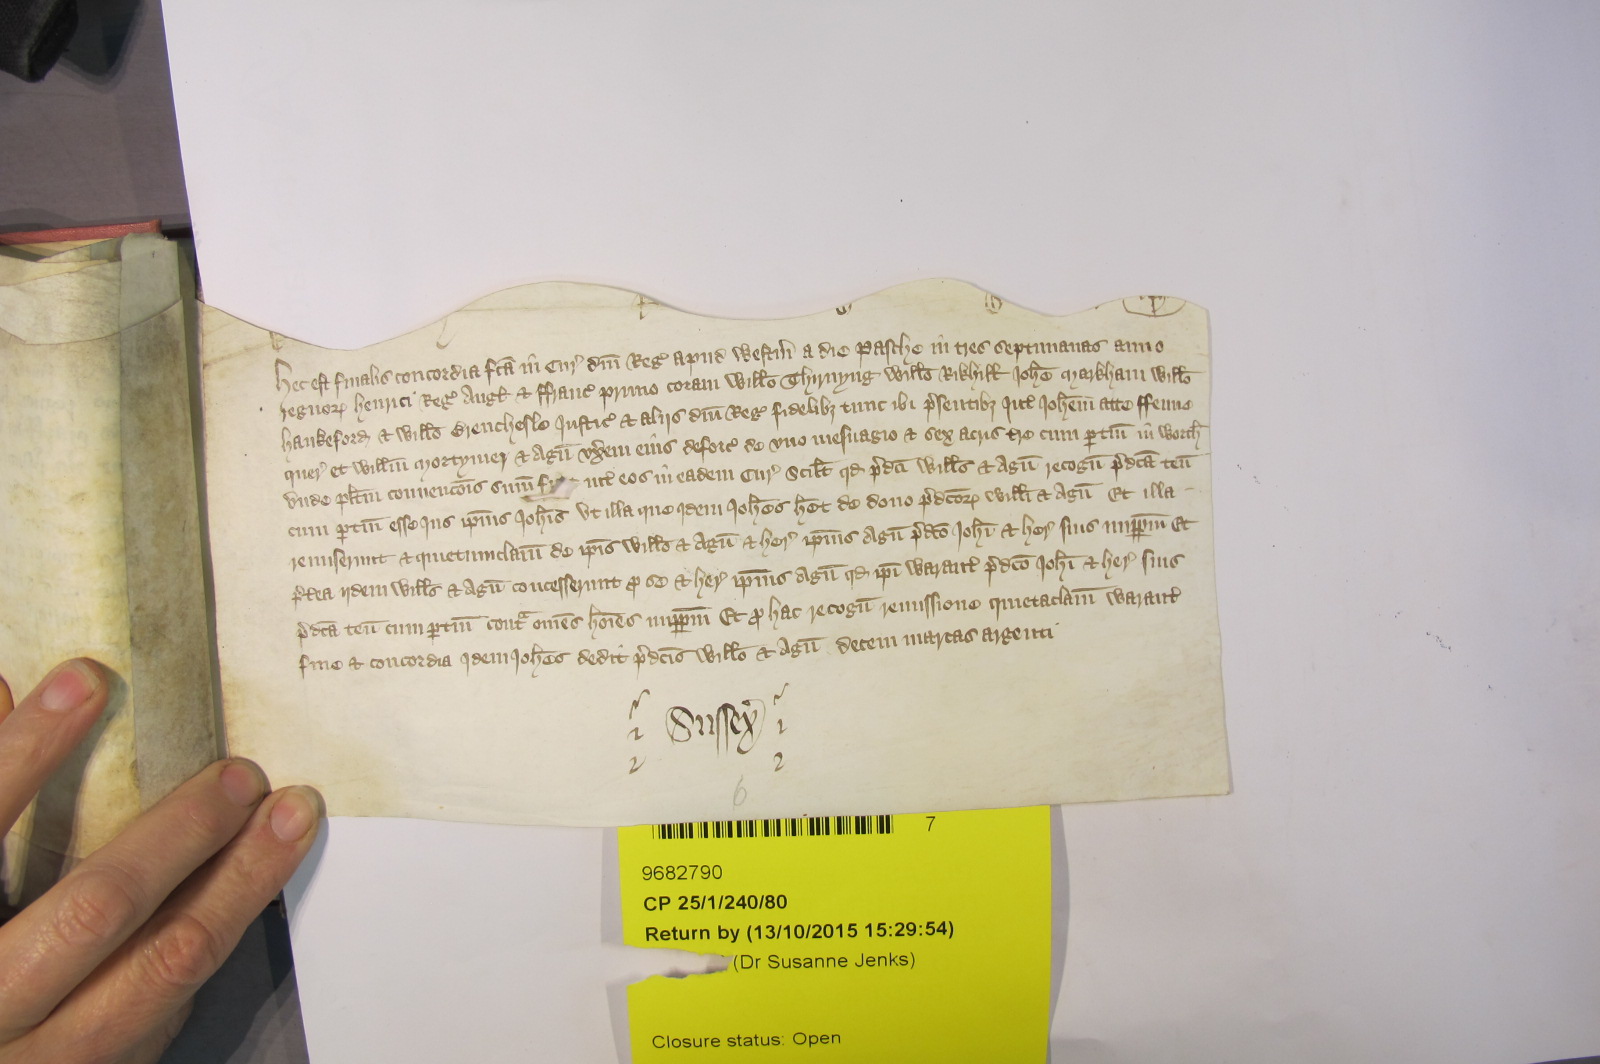 Hec est finalis concordia fca in Cur dni Reg apud Westm a die Pasche in tres septimanas anno
regnor Henrici Reg Angl & ffranc primo coram Willo Thirnyng Willo Rikhill Johe Markham Willo
Hankeford & Willo Brencheslo Justic & aliis dni Reg fidelib tunc ibi psentib Int Johem atte ffenne
quer et Willm Mortymer & Agn vxem eius deforc de vno mesuagio & sex acris tre cum ptin in Worth
vnde plitm convencois sum int eos in eadem Cur Scilt qd pdci Wills & Agn recogn pdca ten
cum ptin esse Jus ipius Johis Vt illa que idem Johes het de dono pdcor Willi & Agn Et illa
remiserunt & quietumclam de ipis Willo & Agn & her ipius Agn pdco Johi & her suis imppm Et
ptea iidem Wills & Agn concesserunt p se & her ipius Agn qd ipi Warant pdco Johi & her suis
pdca ten cum ptin cont omes hoies imppm Et p hac recogn remissione quietaclam Warant
fine & concordia idem Johes dedit pdcis Willo & Agn decem marcas argenti
Sussex
1 1
2 2
6
7
9682790
CP 25/1/240/80
Return by (13/10/2015 15:29:54)
(Dr Susanne Jenks)
Closure status: Open